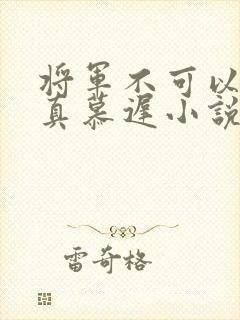 将軍不可以
真慕遲小說
雷奇格